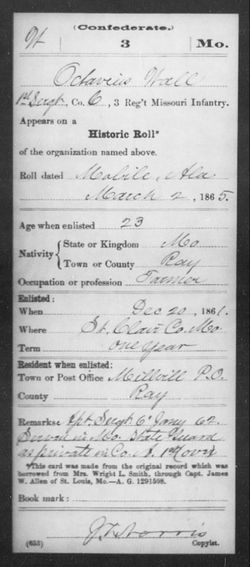 (Confederate.)
H 3 Mo.
Octavius Wall
1st Sergt, Co. C, 3 Reg't Missouri Infantry.
Appears on a
Historic Roll*
of the organization named above.
Roll dated Mobile, Ala
March 2, 1865.
Age when enlisted 23
Nativity State or Kingdom Mo
Town or County Ray
Occupation or profession Farmer
Enlisted:
When Dec 20, 1861.
Where St. Clair Co. Mo
Term one year
Resident when enlisted:
Town or Post Office Millvill P.O.
County Ray
Remarks: Apt Sergt 6" Jany 62.
Served in Mo. State Guard
as private in Co. A. 1st
*This card was made from the original record which was
borrowed from Mrs. Wright L. Smith, through Capt. James
W. Allen of St. Louis, Mo.—A. G. 1291598.
Book mark:
(653) Copyist.